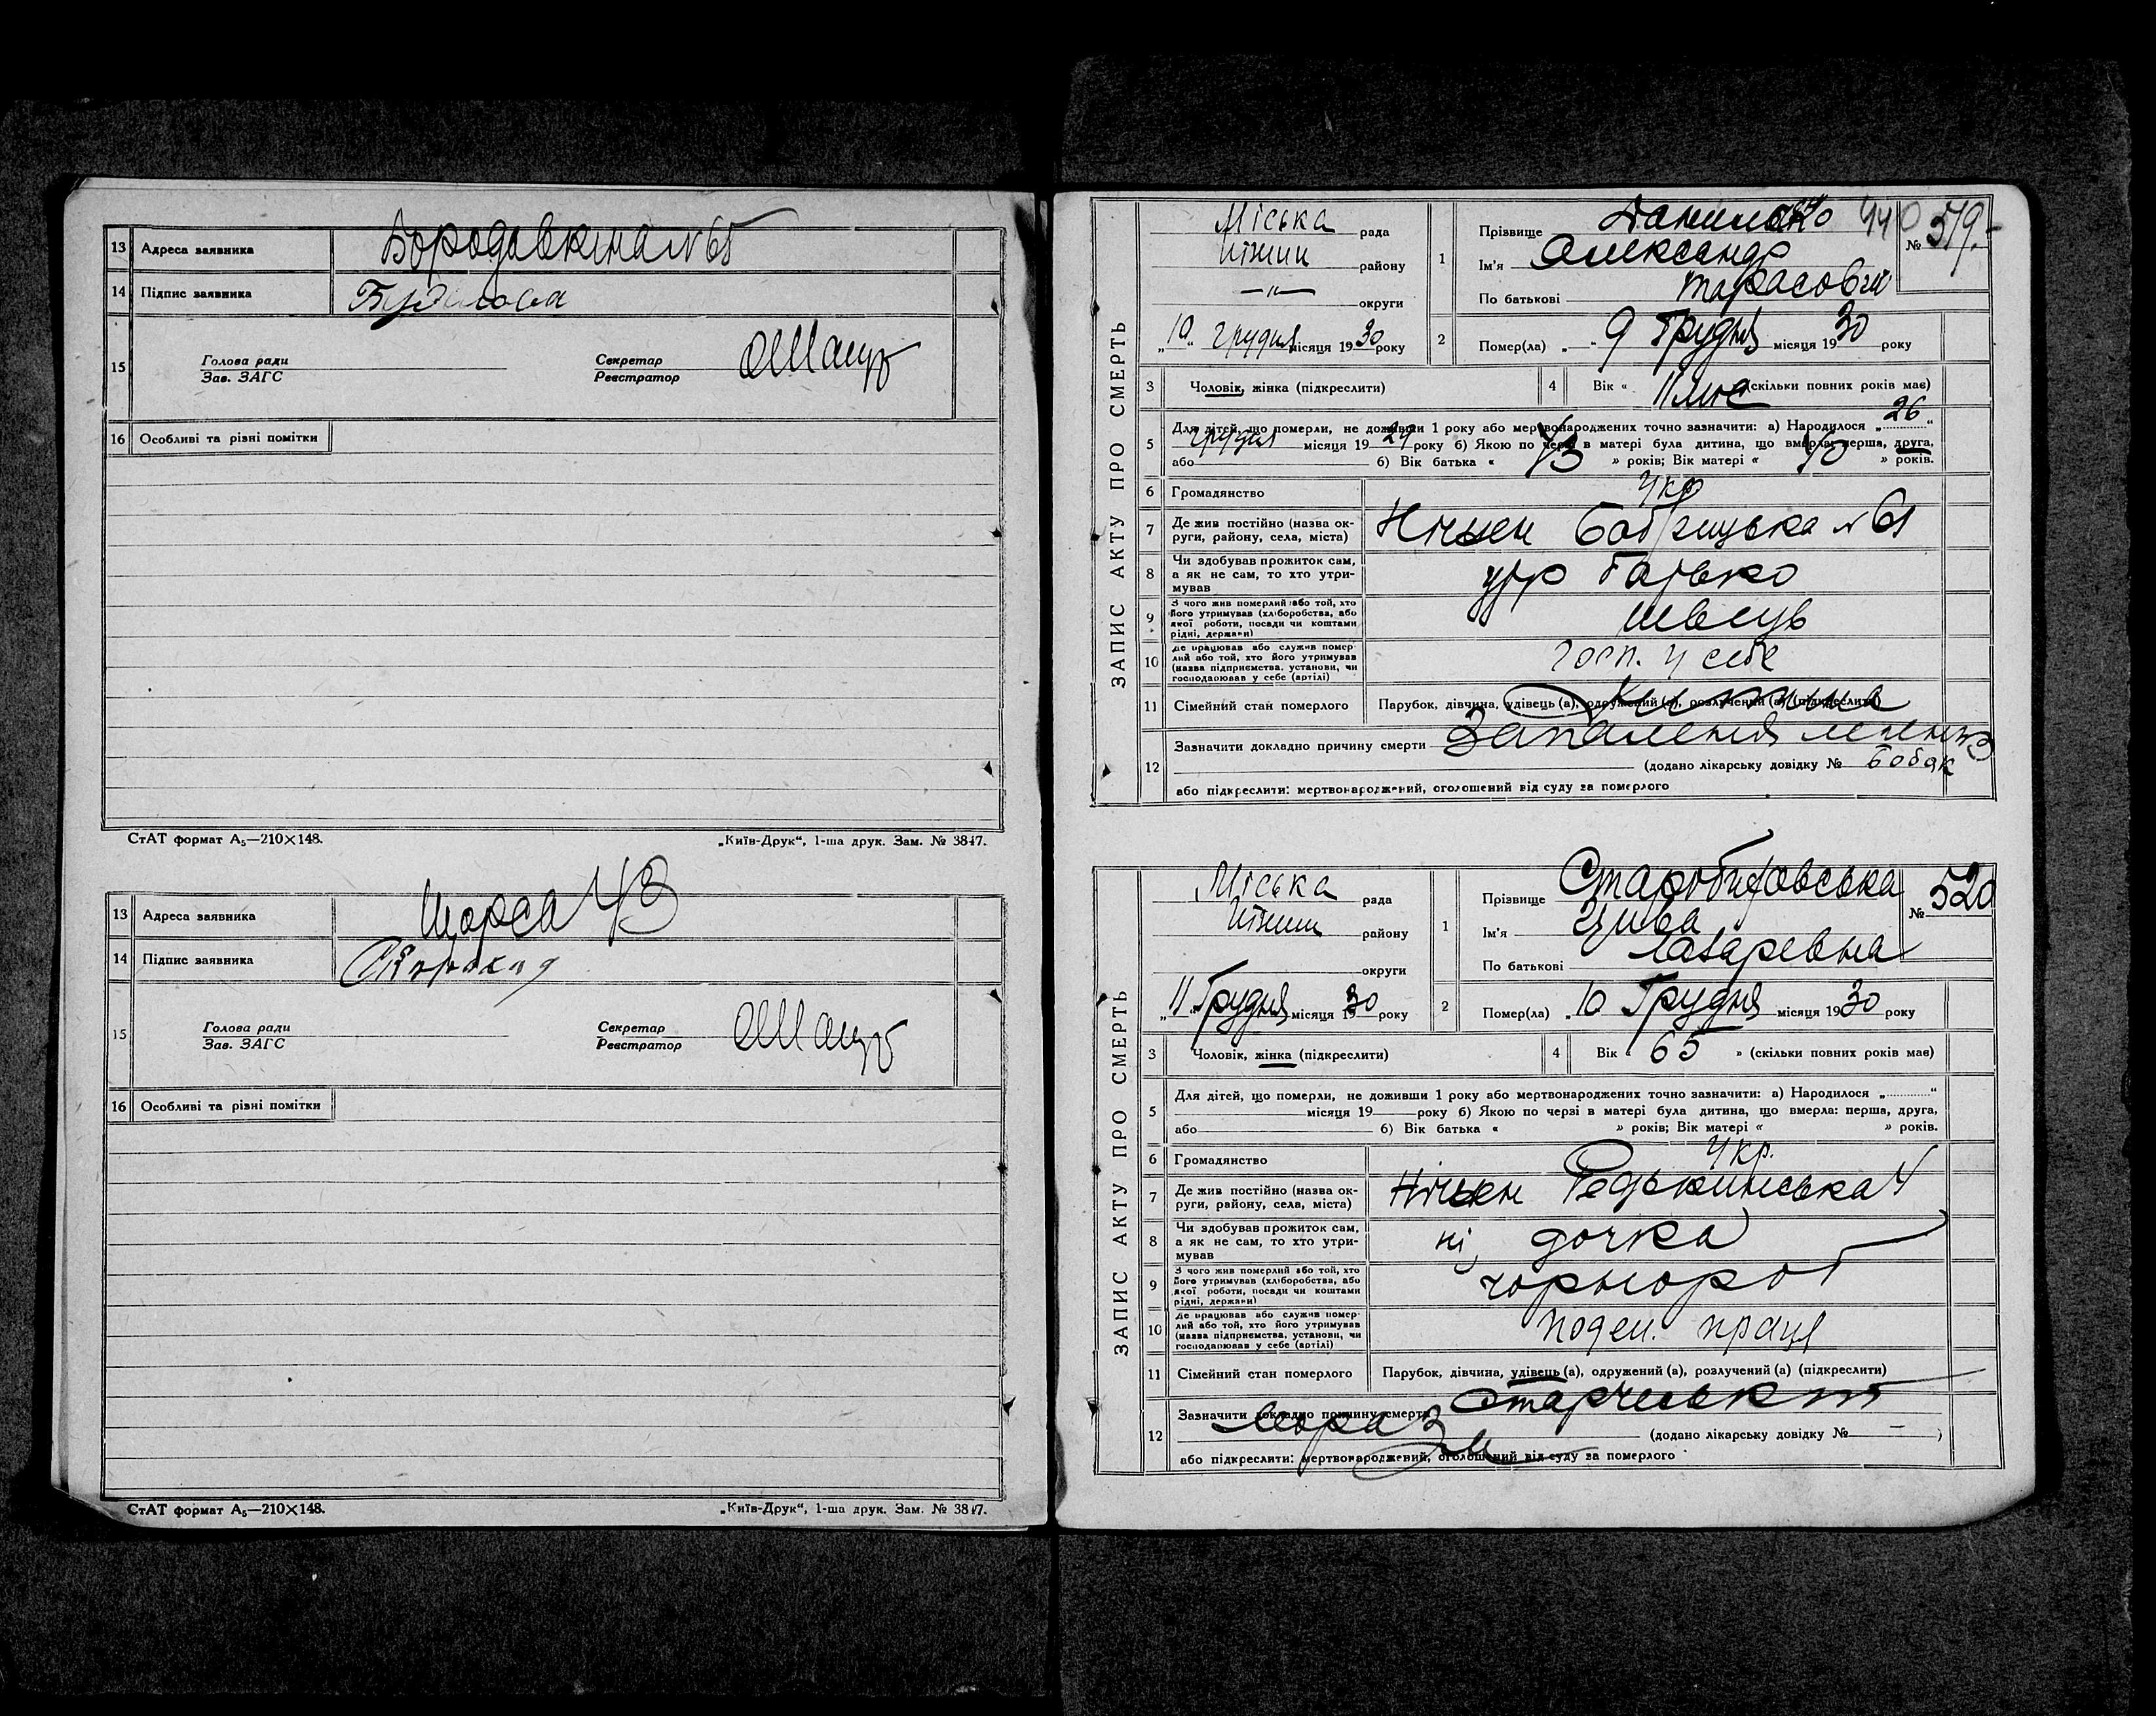 13 Адреса заявника Бородавкина № 65
14 Підпис заявника
15 Голова ради
Зав. ЗАГС
Секретар
Реєстратор
16 Особливі та різні помітки
СтАТ формат А₅—210×148. „Київ-Друк“, 1-ша друк. Зам. № 3847.
13 Адреса заявника Щорса 43
14 Підпис заявника
15 Голова ради
Зав. ЗАГС
Секретар
Реєстратор
16 Особливі та різні помітки
СтАТ формат А₅—210×148. „Київ-Друк“, 1-ша друк. Зам. № 3847.
ЗАПИС АКТУ ПРО СМЕРТЬ
Міська рада
Ніжин району
—„— округи
„10“ грудня місяця 1930 року
1 Прізвище 440 № 519.
Ім'я Олександр
По батькові Тарасович
2 Помер(ла) „ 9 Грудня місяця 1930 року
3 Чоловік, жінка (підкреслити)
4 Вік « 11 міс (скільки повних років має)
5 Для дітей, що померли, не доживши 1 року або мертвонароджених точно зазначити: а) Народилося „26“
грудня місяця 1929 року б) Якою по черзі в матері була дитина, що вмерла: перша, друга,
або б) Вік батька « 43 » років; Вік матері « 40 » років.
6 Громадянство Укр
7 Де жив постійно (назва округи, району, села, міста) Ніжен № 61
8 Чи здобував прожиток сам, а як не сам, то хто утримував утр батько
9 З чого жив померлий або той, хто його утримував (хліборобства, або якої роботи, посади чи коштами рідні, держави) швець
10 Де працював або служив померлий або той, хто його утримував (назва підприємства, установи, чи господарював у себе (артілі) госп. у себе
11 Сімейний стан померлого Парубок, дівчина, удівець (а), одружений (а), розлучений (а) (підкреслити)
12 Зазначити докладно причину смерти Запалення легенів
(додано лікарську довідку №
або підкреслити: мертвонароджений, оголошений від суду за померлого
ЗАПИС АКТУ ПРО СМЕРТЬ
Міська рада
Ніжин району
округи
„11“ Грудня місяця 1930 року
1 Прізвище № 520
Ім'я Цива
По батькові Лазаревна
2 Помер(ла) „10 Грудня місяця 1930 року
3 Чоловік, жінка (підкреслити)
4 Вік « 65 » (скільки повних років має)
5 Для дітей, що померли, не доживши 1 року або мертвонароджених точно зазначити: а) Народилося „ “
місяця 19 року б) Якою по черзі в матері була дитина, що вмерла: перша, друга,
або б) Вік батька « » років; Вік матері « » років.
6 Громадянство Укр.
7 Де жив постійно (назва округи, району, села, міста) Ніжен Редькинська 4
8 Чи здобував прожиток сам, а як не сам, то хто утримував ні, дочка
9 З чого жив померлий або той, хто його утримував (хліборобства, або якої роботи, посади чи коштами рідні, держави) чорнороб
10 Де працював або служив померлий або той, хто його утримував (назва підприємства, установи, чи господарював у себе (артілі) поден. праця
11 Сімейний стан померлого Парубок, дівчина, удівець (а), одружений (а), розлучений (а) (підкреслити)
12 Зазначити докладно причину смерти Старческий
(додано лікарську довідку № — )
або підкреслити: мертвонароджений, оголошений від суду за померлого